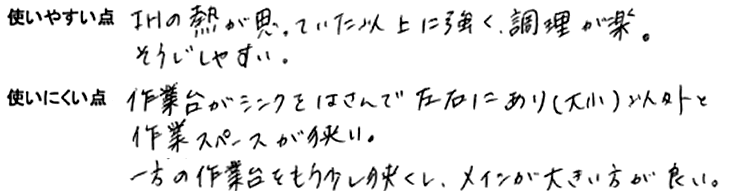 使いやすい点 IHの熱が思っていた以上に強く、調理が楽。
そうじしやすい。
使いにくい点 作業台がシンクをはさんで左右にあり(大小)以外と
作業スペースが狭い。
一方の作業台をもう少し狭くし、メインが大きい方が良い。